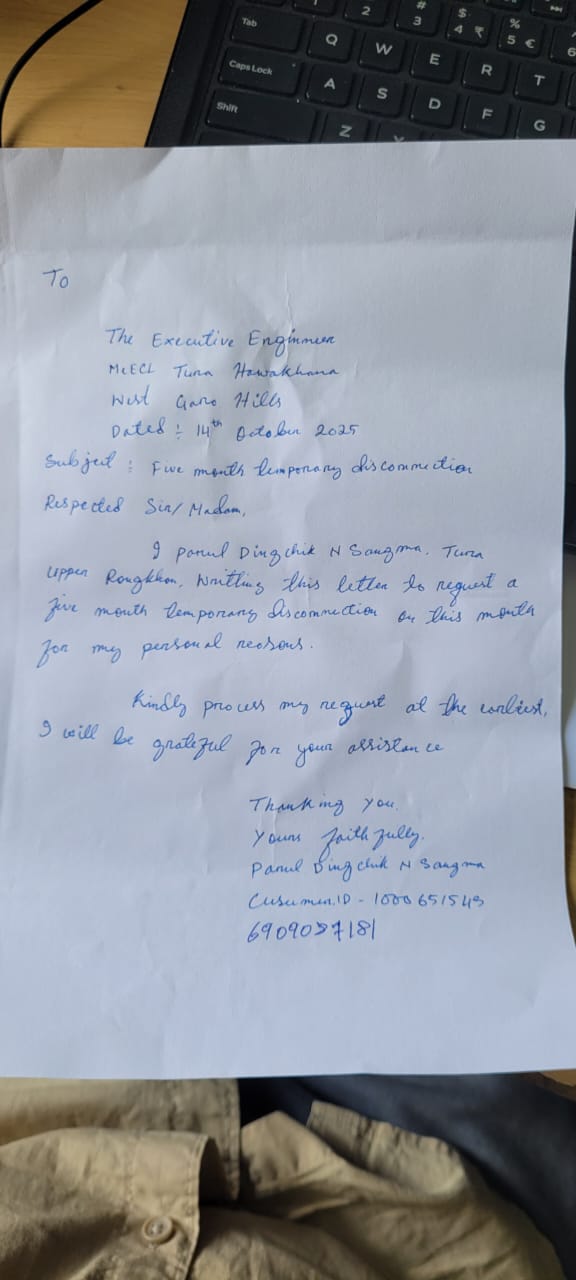 Tab
Q W E R T
Caps Lock
A S D F G
Shift
Z
To
The Executive Enginmeer
MeECL Tura Hawakhana
West Garo Hills
Dated :- 14th October 2025
Subject : Five month temporary disconnection
Respected Sir/Madam,
I Dingchik N Sangma. Tura
Upper Rongkhon, Writting this letter to request a
five month temporary disconnection on this month
for my personal reasons.
Kindly process my request at the earliest,
I will be grateful for your assistance
Thanking you.
Yours faithfully.
Dingchik N Sangma
ID - 1000651549